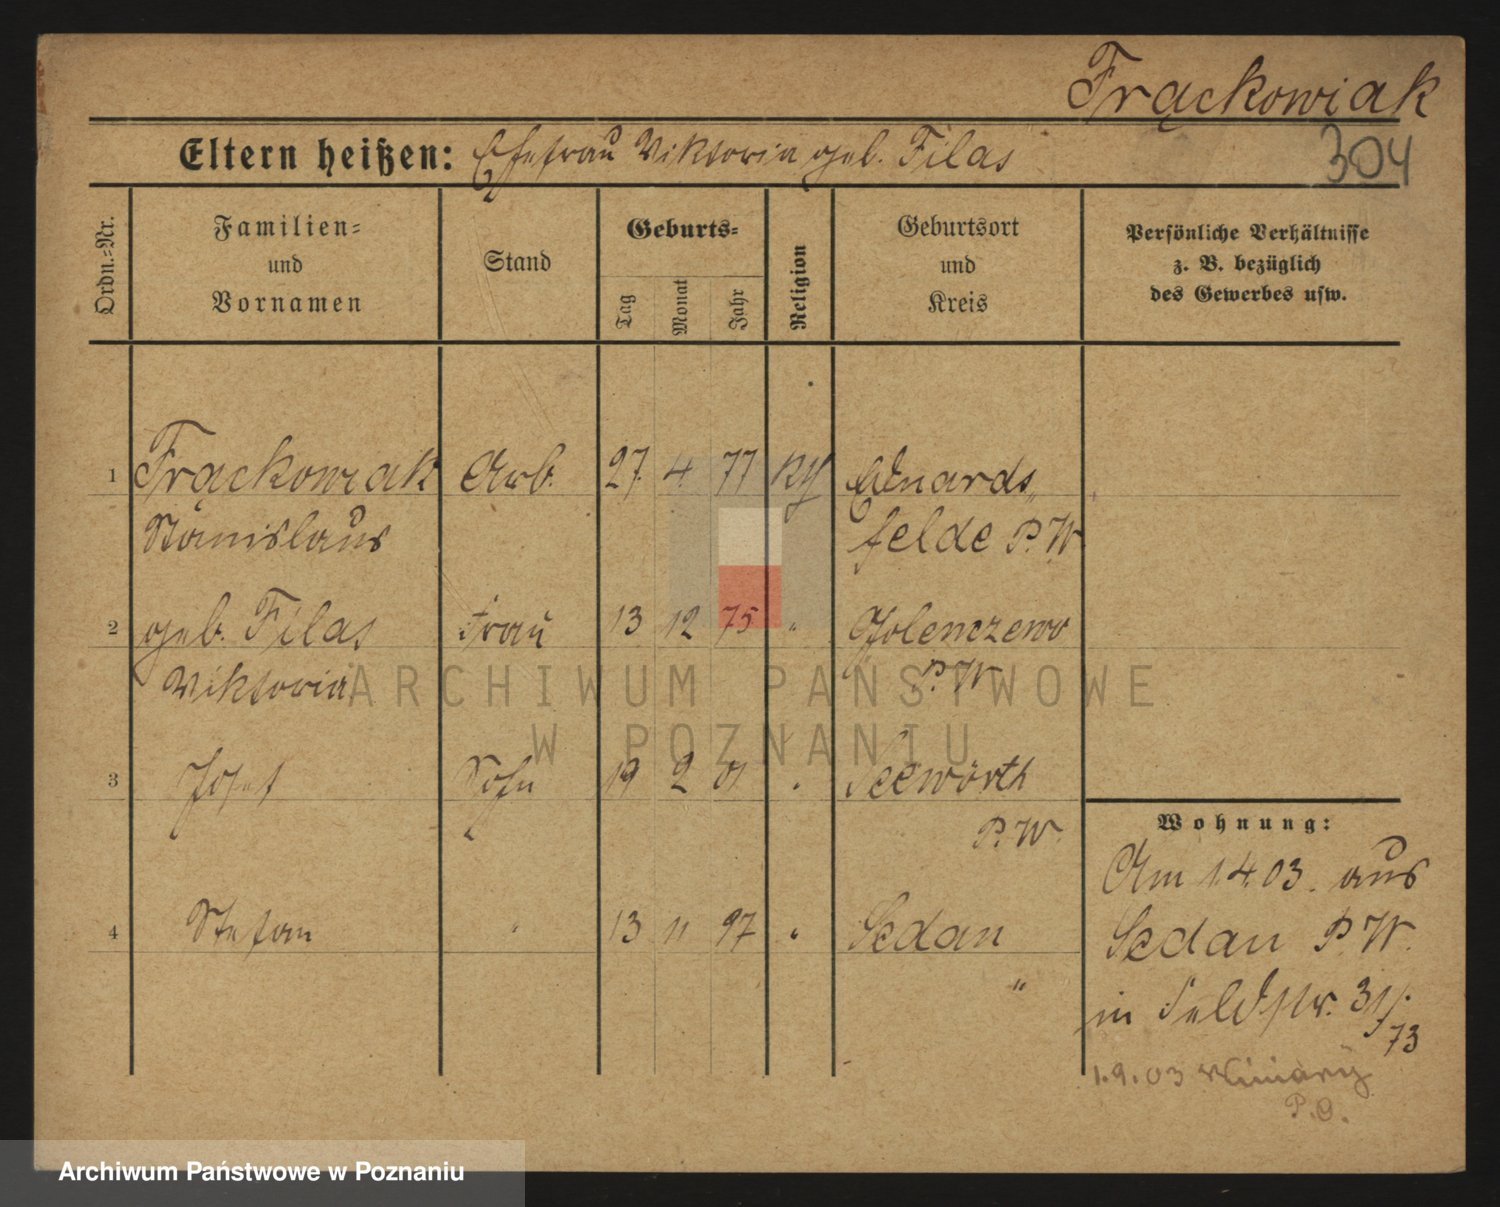 Frąckowiak
304
Eltern heißen: Ehefrau Viktoria geb. Filas
Ordn.-Nr.
Familien-
und
Vornamen
Stand
Geburts-
Tag
Monat
Jahr
Religion
Geburtsort
und
Kreis
Persönliche Verhältnisse
z. B. bezüglich
des Gewerbes usw.
1 Frąckowiak Arb. 27. 4. 77 Eduards-
Stanislaus felde P.W.
2 geb. Filas Frau 13 12 75 "
Viktoria P.W.
3 Josef Sohn 19 2 01 " Seewörth
P.W.
4 Stefan " 13 11 97 " Sedan
"
Wohnung:
Am 1.4.03. aus
Sedan P.W.
in Feldstr. 31/.
73
1.9.03 Winiary
P.O.
ARCHIWUM PAŃSTWOWE
W POZNANIU
Archiwum Państwowe w Poznaniu